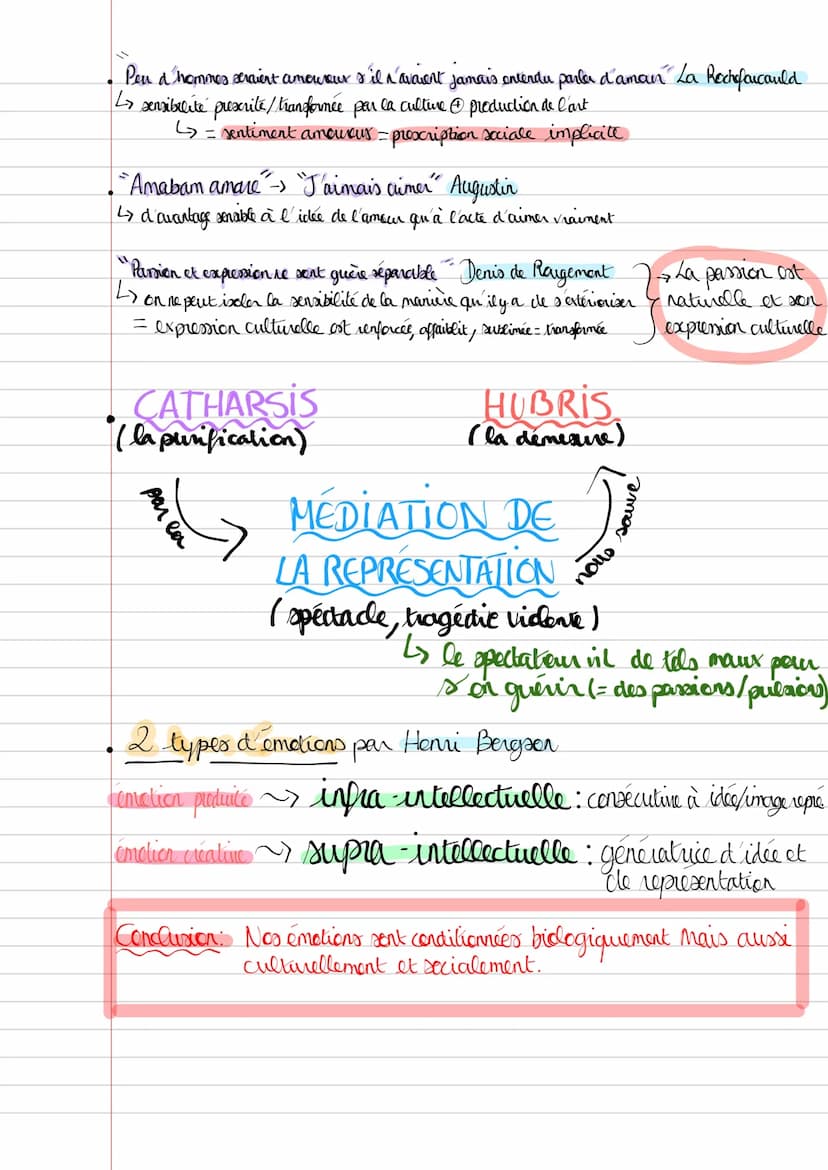 • "Peu d'hommes seraient amoureux s'il n'avaient jamais entendu parler d'amour" La Rochefoucauld
↳ sensibilité prescrite/transformée par la culture ⊕ production de l'art
↳ = sentiment amoureux = prescription sociale implicite
• "Amabam amare" → "J'aimais aimer" Augustin
↳ d'avantage sensible à l'idée de l'amour qu'à l'acte d'aimer vraiment
"Passion et expression ne sont guère séparable" Denis de Rougemont
↳ on ne peut isoler la sensibilité de la manière qu'il y a de s'extérioriser
= expression culturelle est renforcée, affaiblit, sublimée = transformée
→ La passion est
naturelle et son
expression culturelle
• CATHARSIS HUBRIS
(la purification) (la démesure)
par la
nous sauve
MÉDIATION DE
LA REPRÉSENTATION
(spéctacle, tragédie violente)
↳ le spectateur vit de tels maux pour
s'en guérir (= des passions/pulsions)
• 2 types d'émotions par Henri Bergson
émotion produite ~> infra-intellectuelle : consécutive à idée/image repré
émotion créative ~> supra-intellectuelle : génératrice d'idée et
de représentation
Conclusion: Nos émotions sont conditionnées biologiquement mais aussi
culturellement et socialement.